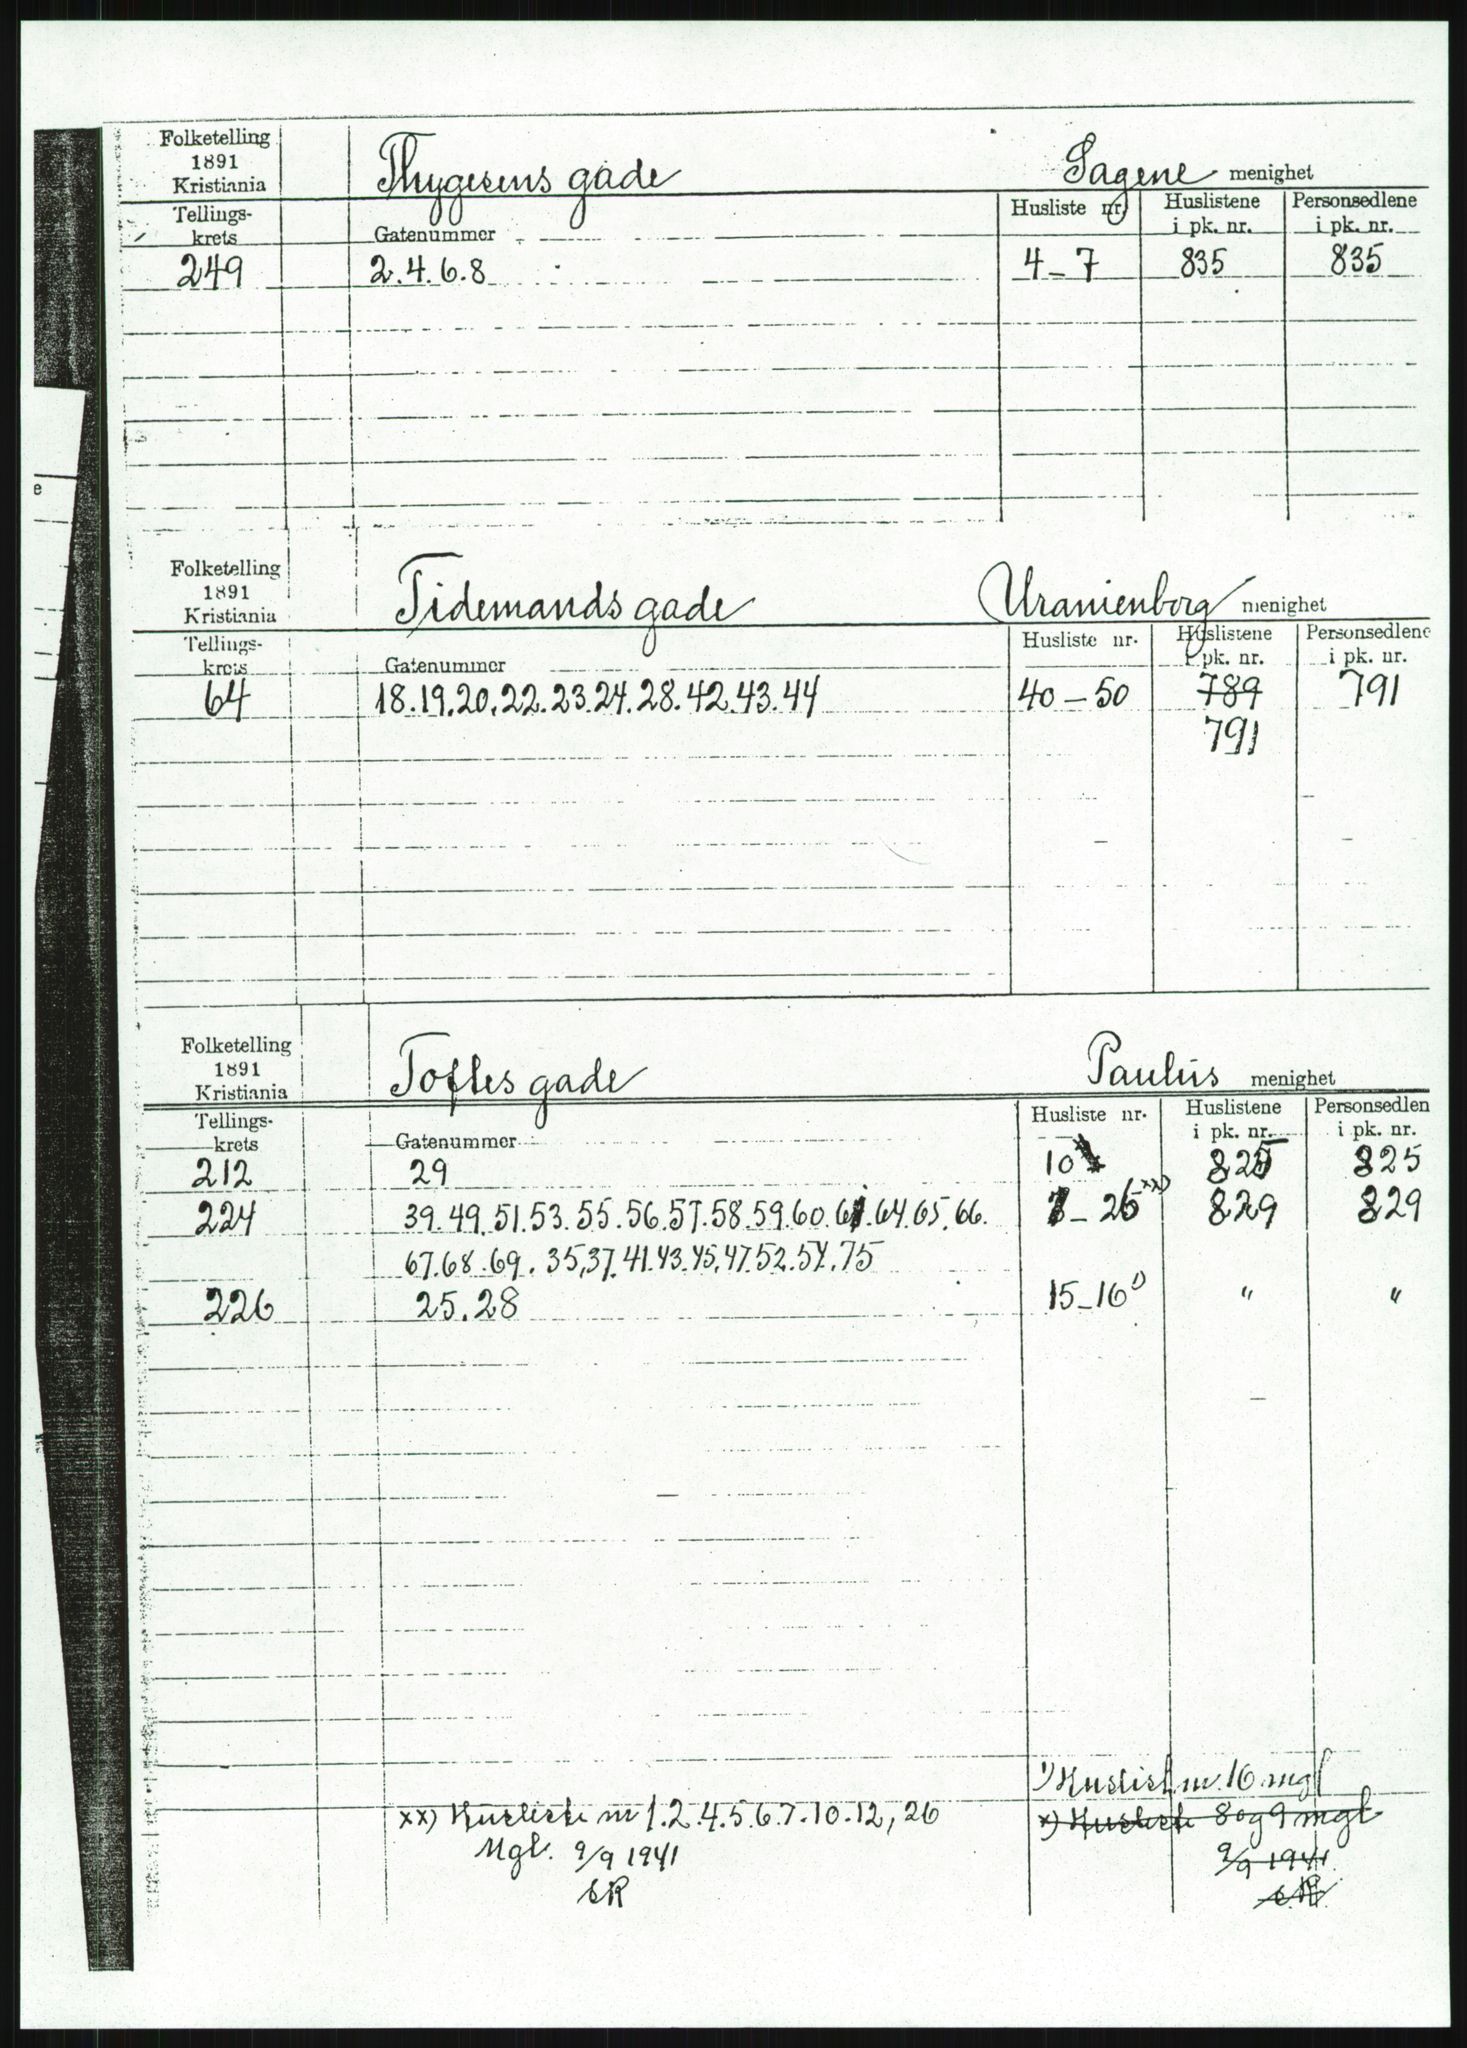 Folketelling
1891
Kristiania
Thygesens gade
Sagene menighet
Tellings-
krets
Gatenummer
Husliste nr.
Huslistene
i pk. nr.
Personsedlene
i pk. nr.
249 2.4.6.8 4-7 835 835
e
Folketelling
1891
Kristiania
Tidemands gade
Uranienborg menighet
Tellings-
krets
Gatenummer
Husliste nr.
Huslistene
i pk. nr.
Personsedlene
i pk. nr.
64 18.19.20.22.23.24.28.42.43.44 40-50 789 791
791
Folketelling
1891
Kristiania
Toftes gade
Paulus menighet
Tellings-
krets
Gatenummer
Husliste nr.
Huslistene
i pk. nr.
Personsedlen
i pk. nr.
212 29 10 825 825
224 39.49.51.53.55.56.57.58.59.60.61.64.65.66. - 26 xx) 829 829
67.68.69.35,37.41.43.45.47.52.54.75
226 25.28 15-16 1) " "
1) Huslist nr. 16 mgl
xx) Husliste nr 1.2.4.5.6.7.10.12,26
Mgl. 9/9 1941
SR
x) Husliste 8 og 9 mgl
9/9 1941.